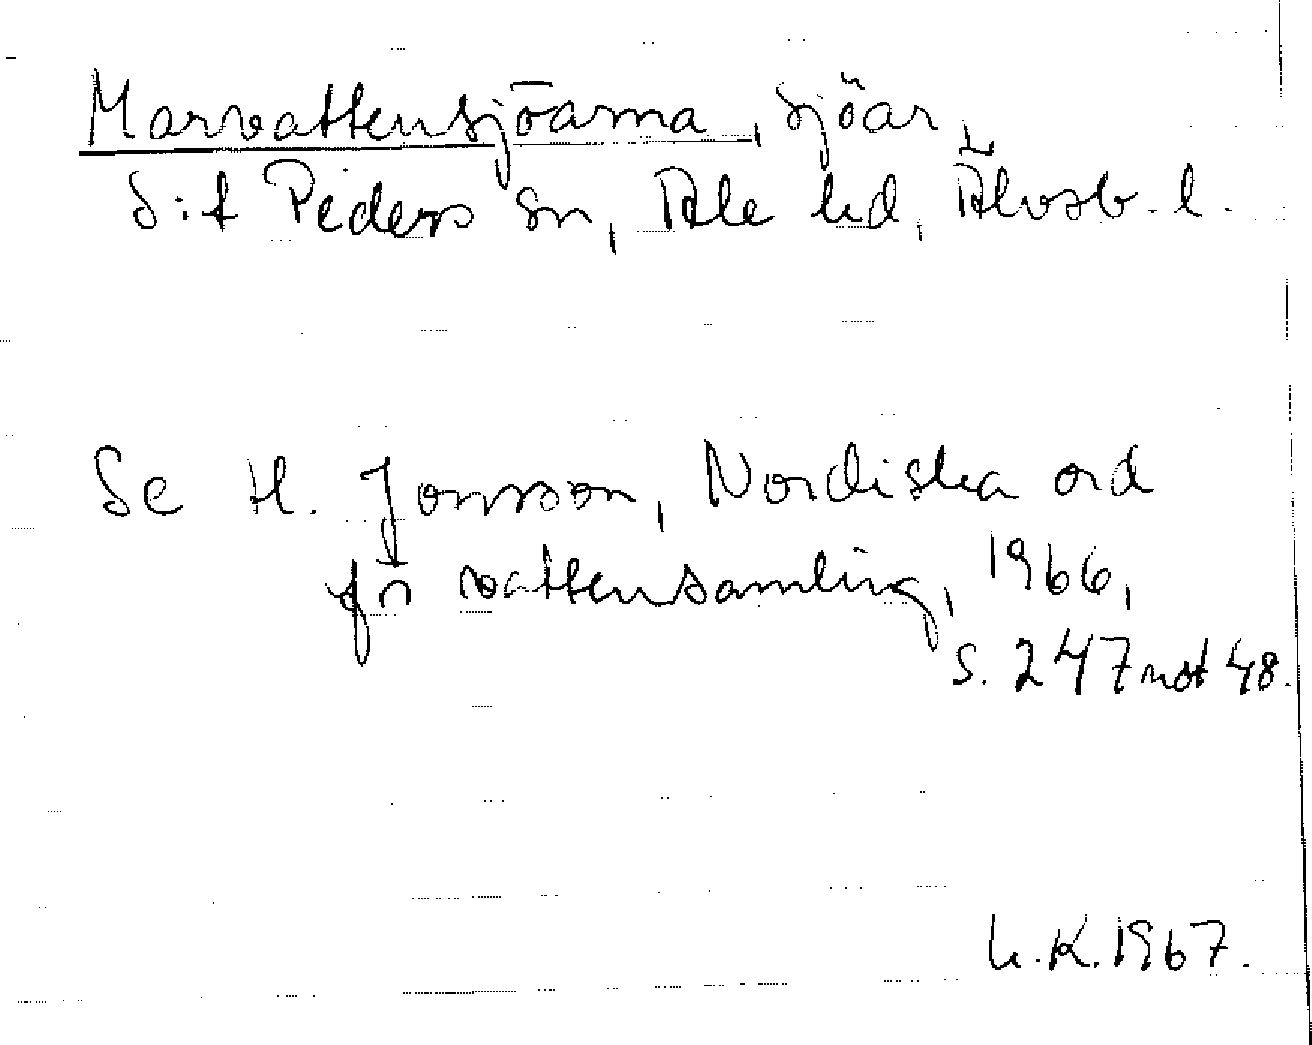 Marvattensjöarna, sjöar,
S:t Peders sn, Ale hd, Älvsb. l.
Se H. Jonsson, Nordiska ord
för vattensamling, 1966,
s. 247 not 48.
K. 1967.